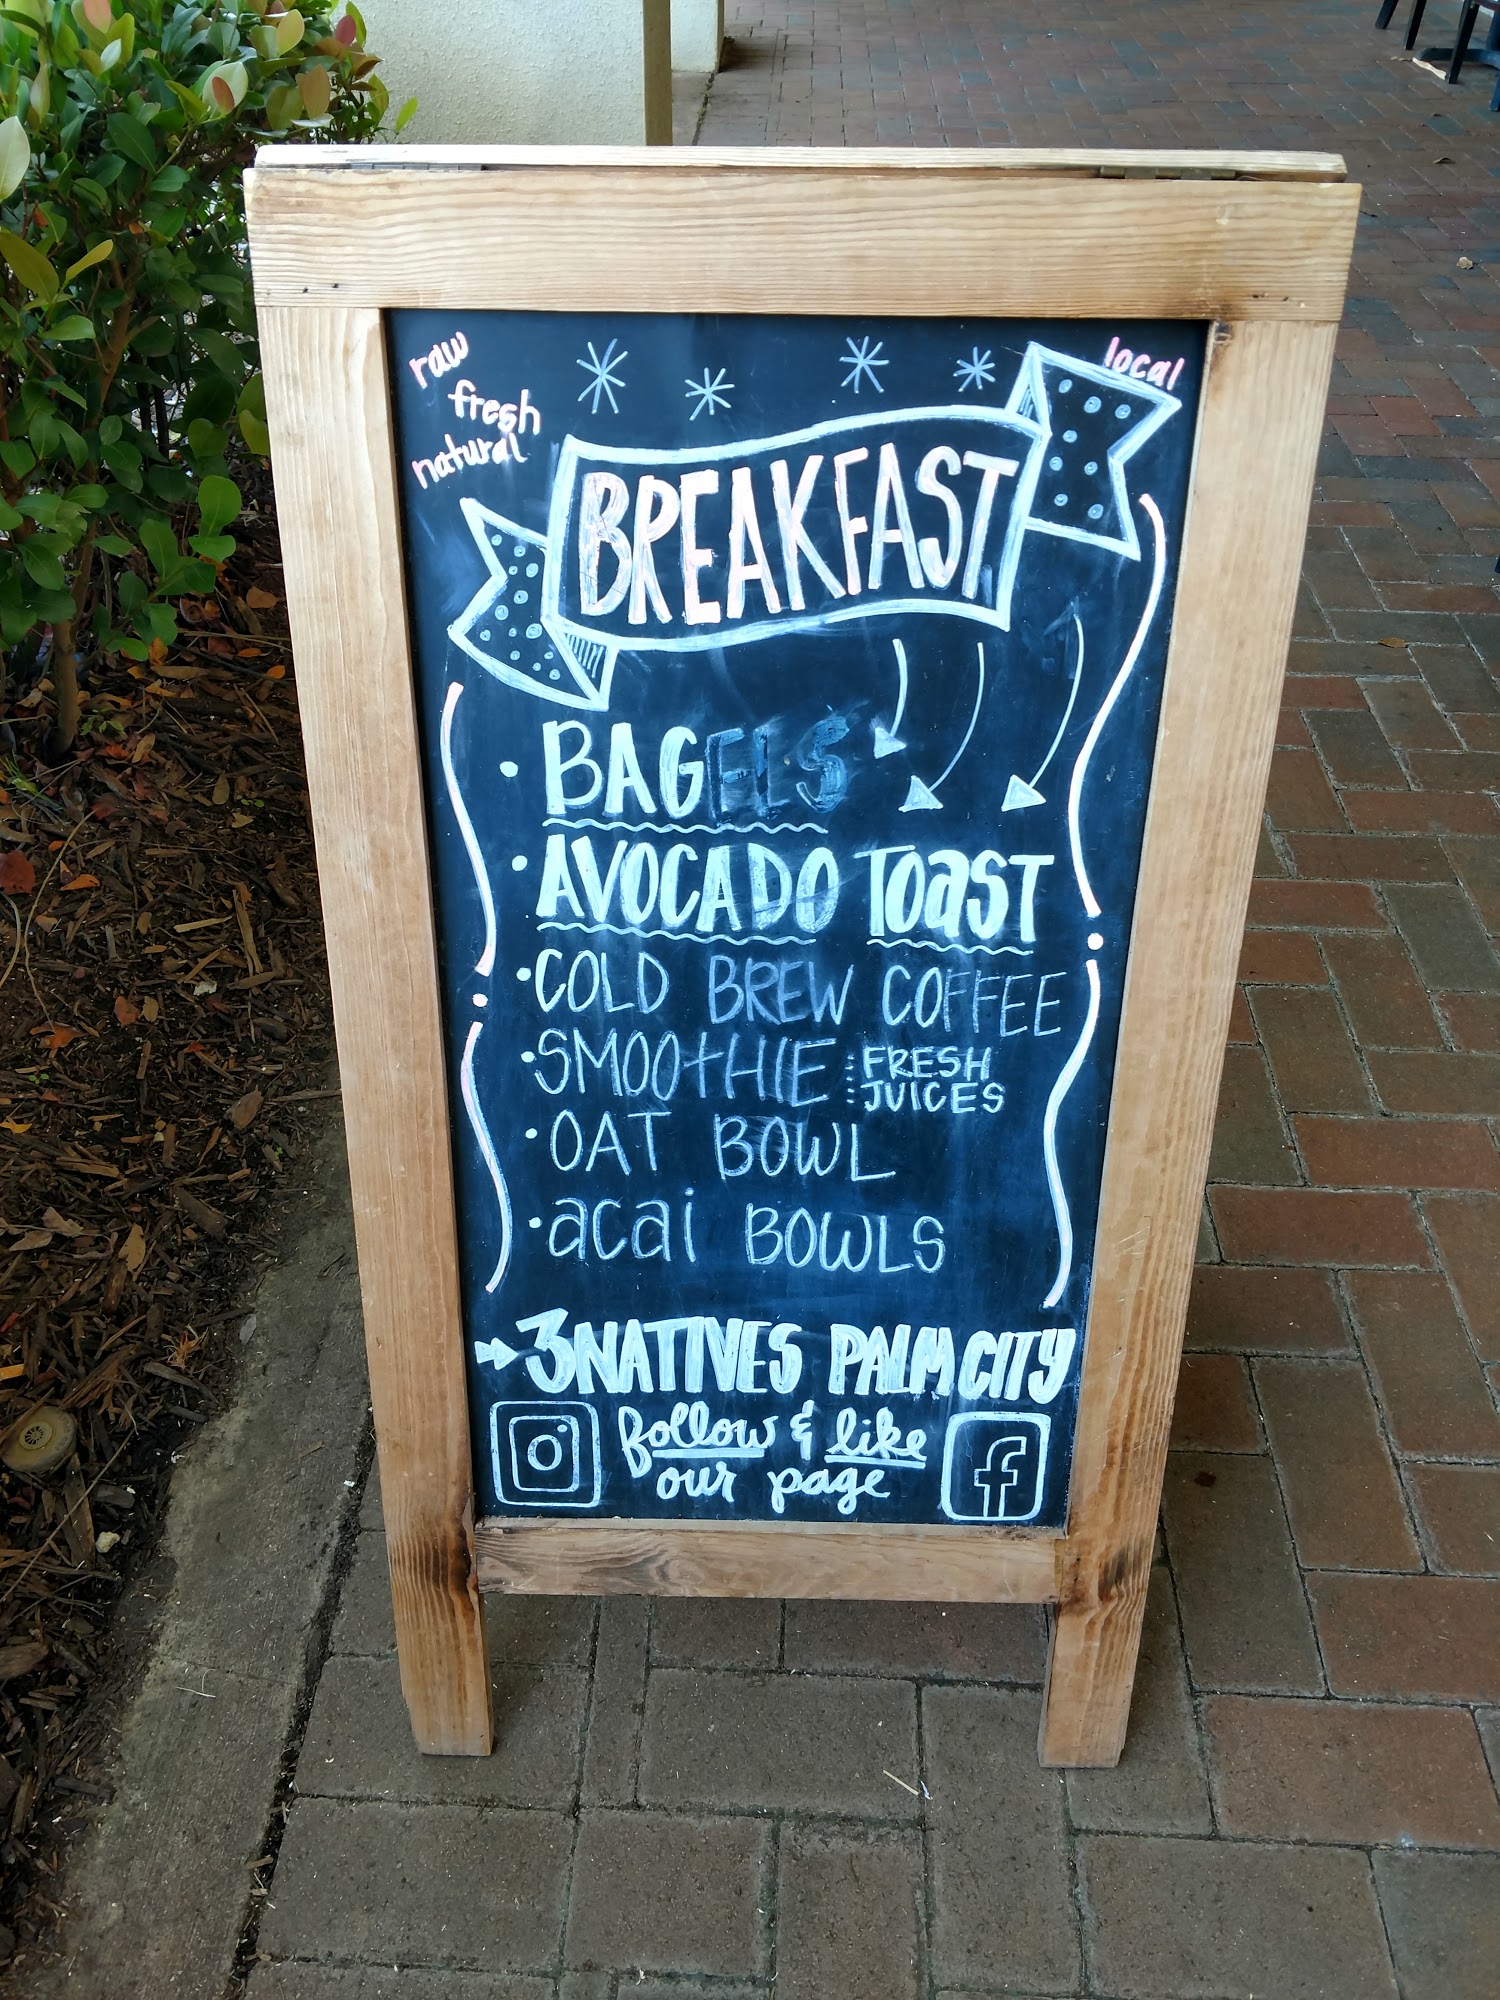 raw
fresh
natural
local
BREAKFAST
• BAGELS
• AVOCADO TOAST
• COLD BREW COFFEE
• SMOOTHIE : FRESH JUICES
• OAT BOWL
• acai BOWLS
3NATIVES PALM CITY
follow & like
our page
f